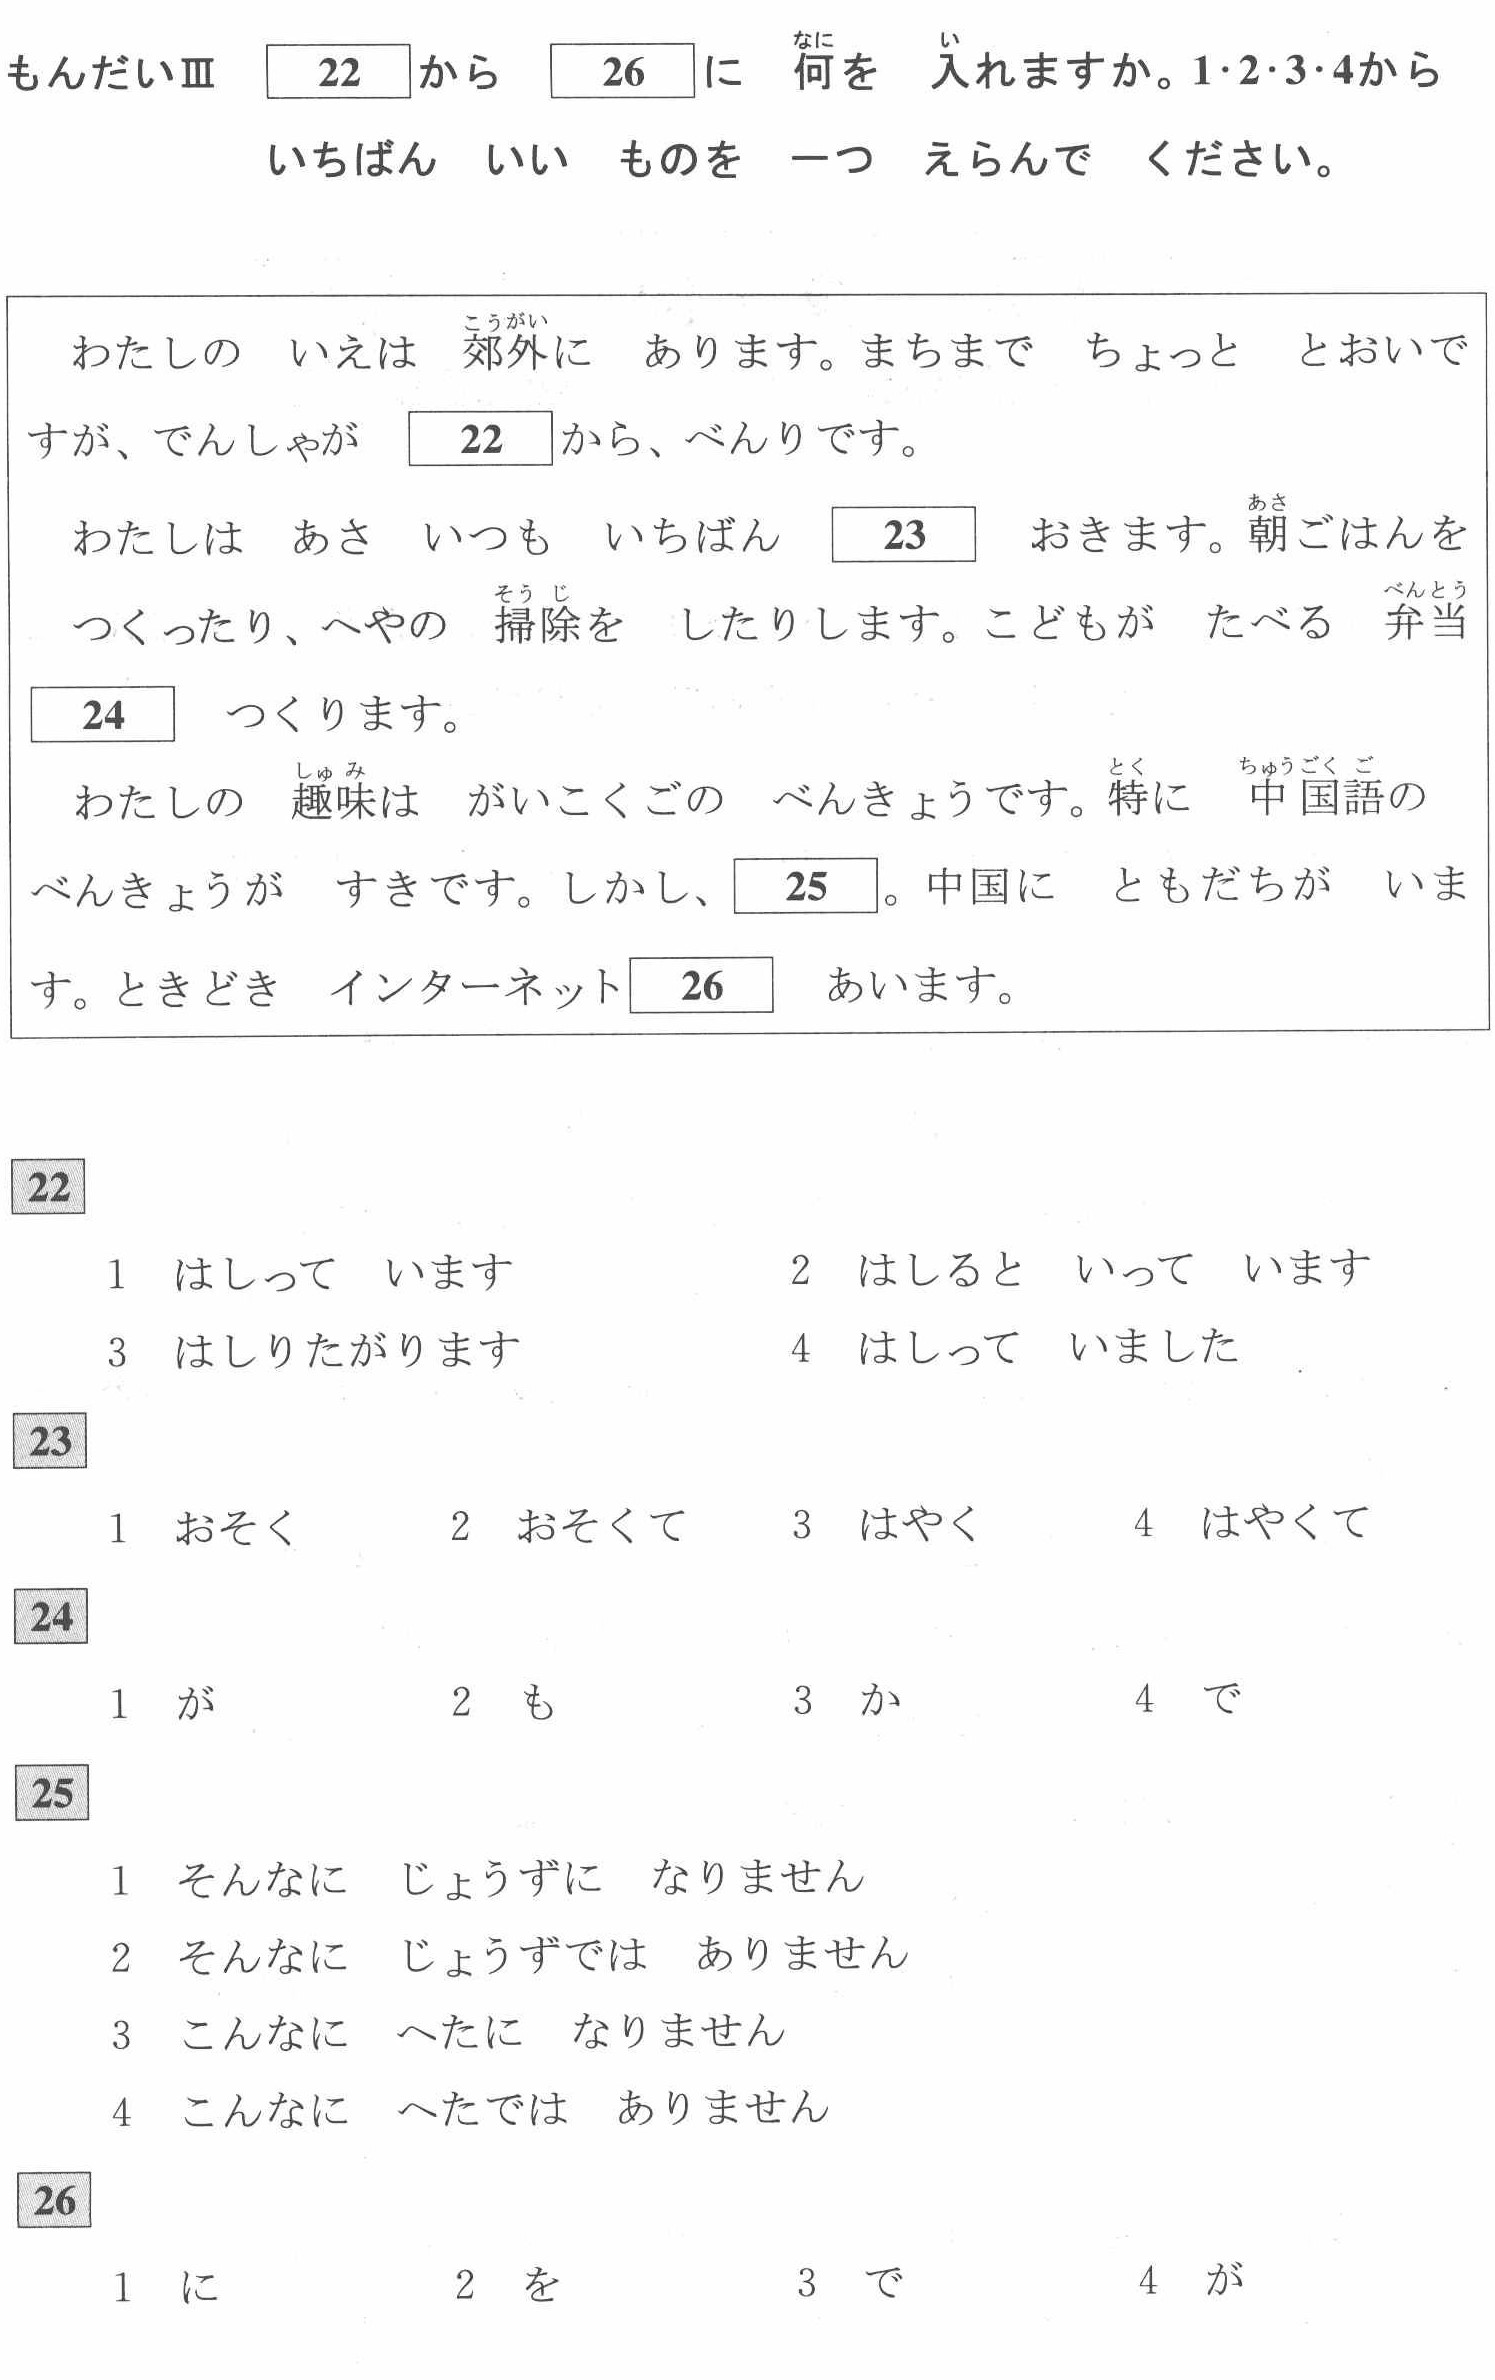 もんだいⅢ 22 から 26 に 何を 入れますか。1・2・3・4から
いちばん いい ものを 一つ えらんで ください。
わたしの いえは 郊外に あります。まちまで ちょっと とおいで
すが、でんしゃが 22 から、べんりです。
わたしは あさ いつも いちばん 23 おきます。朝ごはんを
つくったり、へやの 掃除を したりします。こどもが たべる 弁当
24 つくります。
わたしの 趣味は がいこくごの べんきょうです。特に 中国語の
べんきょうが すきです。しかし、 25 。中国に ともだちが いま
す。ときどき インターネット 26 あいます。
22
1 はしって います 2 はしると いって います
3 はしりたがります 4 はしって いました
23
1 おそく 2 おそくて 3 はやく 4 はやくて
24
1 が 2 も 3 か 4 で
25
1 そんなに じょうずに なりません
2 そんなに じょうずでは ありません
3 こんなに へたに なりません
4 こんなに へたでは ありません
26
1 に 2 を 3 で 4 が